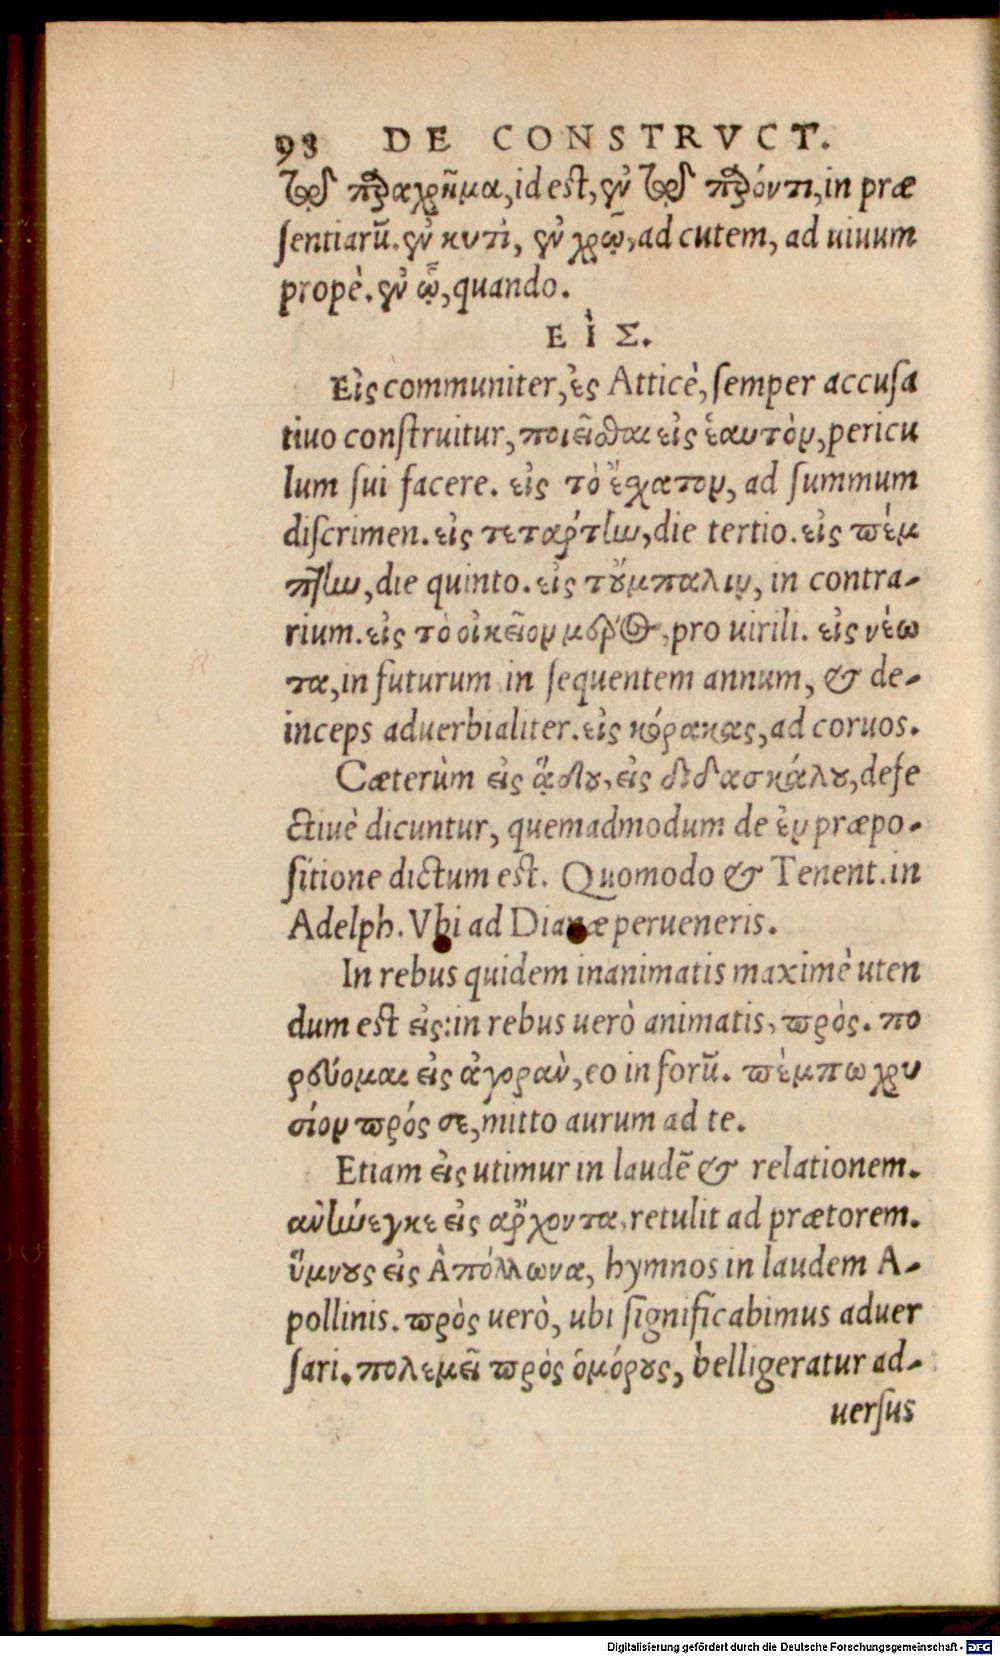 93 DE CONSTRVCT.
τῷ παραχρῆμα, id est, ἐν τῷ παρόντι, in præ
sentiarũ. ἐν κυτὶ, ἐν χρῷ, ad cutem, ad uiuum
propè. ἐν ᾧ, quando.
ΕἸΣ.
Εἰς communiter, ἐς Atticè, semper accusa
tiuo construitur, ποιεῖσθαι εἰς ἑαυτὸν, pericu
lum sui facere. εἰς τὸ ἔσχατον, ad summum
discrimen. εἰς τετάρτην, die tertio. εἰς πέμ
πτην, die quinto. εἰς τοὔμπαλιν, in contra-
rium. εἰς τὸ οἰκεῖον μέρος, pro uirili. εἰς νέω
τα, in futurum in sequentem annum, & de-
inceps aduerbialiter. εἰς κόρακας, ad coruos.
Cæterùm εἰς ᾅδου, εἰς διδασκάλου, defe
ctiuè dicuntur, quemadmodum de ἐν præpo-
sitione dictum est. Quomodo & Tenent. in
Adelph. Vbi ad Dianæ perueneris.
In rebus quidem inanimatis maximè uten
dum est εἰς: in rebus uerò animatis, πρὸς. πο
ρεύομαι εἰς ἀγορὰν, eo in forũ. πέμπω χρυ
σίον πρός σε, mitto aurum ad te.
Etiam εἰς utimur in laudẽ & relationem.
ἀνήνεγκε εἰς ἄρχοντα, retulit ad prætorem.
ὕμνους εἰς Ἀπόλλωνα, hymnos in laudem A-
pollinis. πρὸς uerò, ubi significabimus aduer
sari. πολεμεῖ πρὸς ὁμόρους, belligeratur ad-
uersus
Digitalisierung gefördert durch die Deutsche Forschungsgemeinschaft - DFG